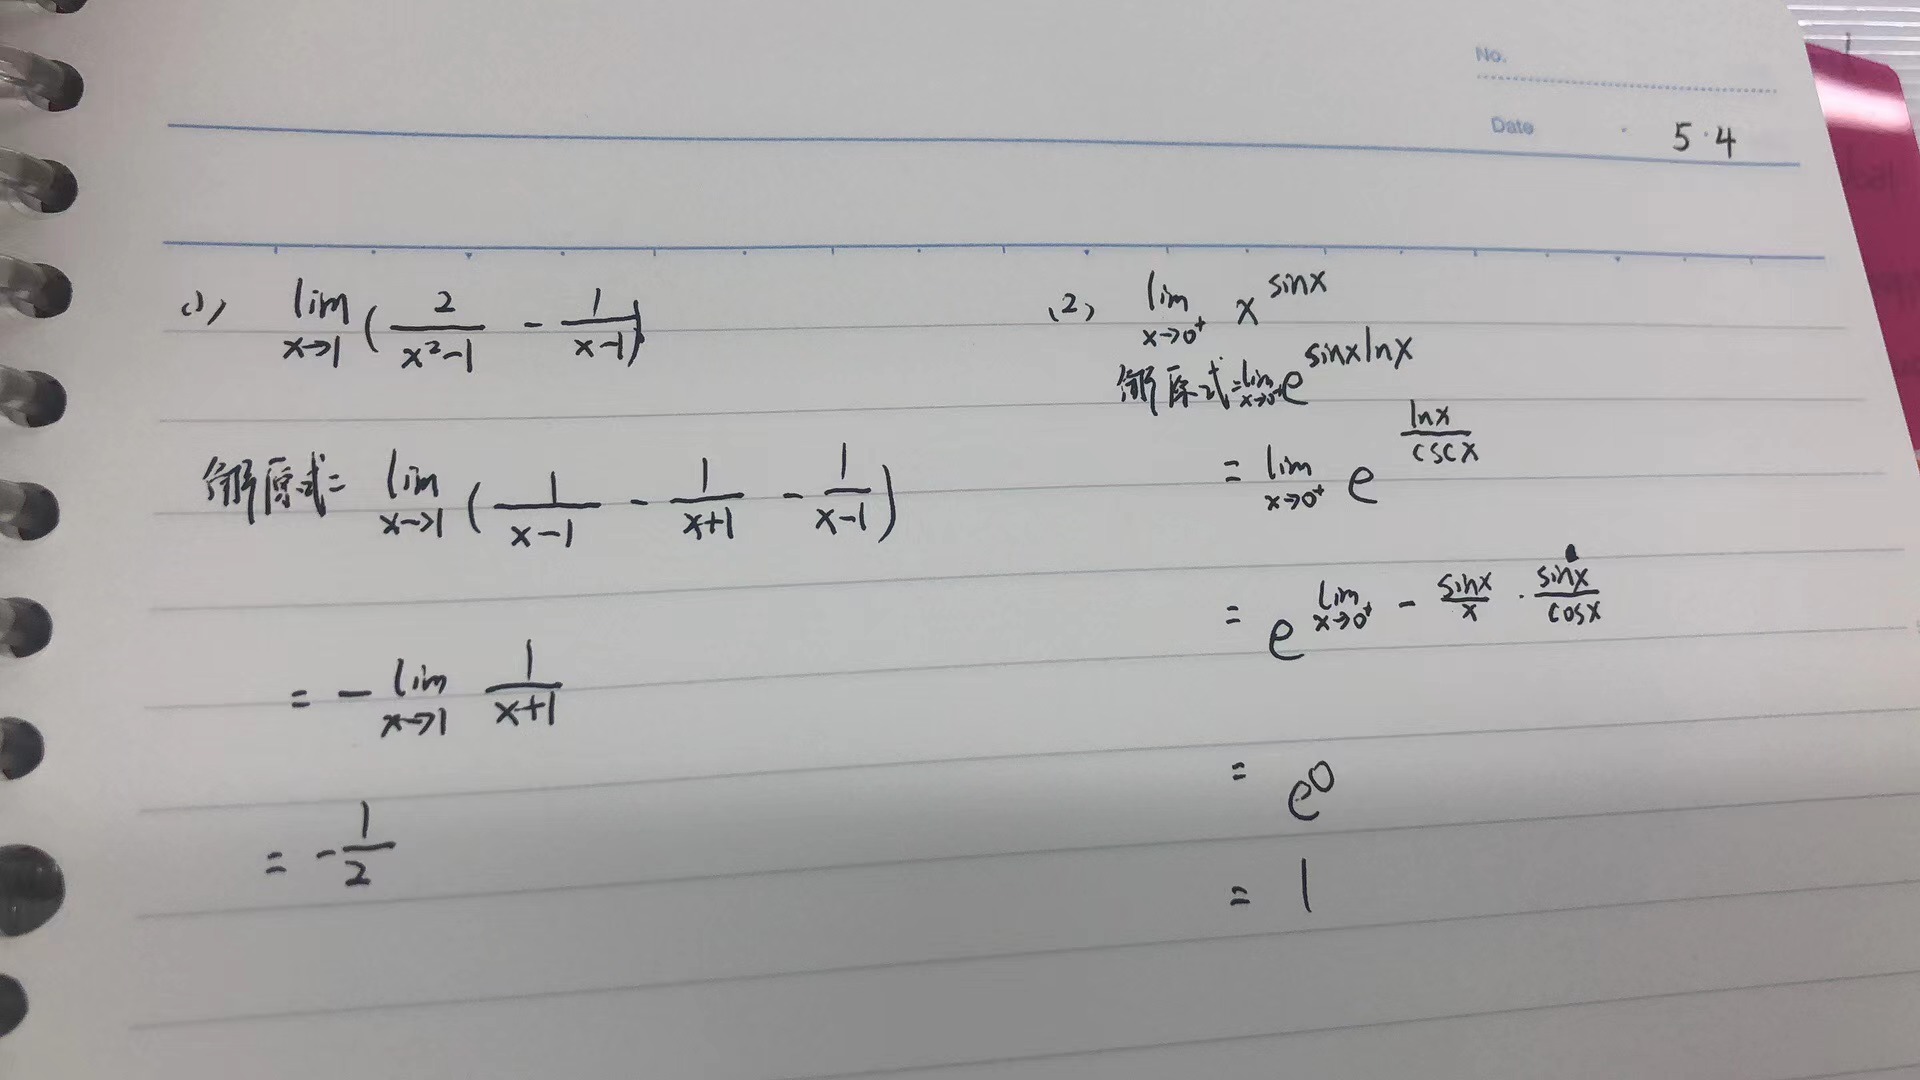 No.
Date 5.4
(1) lim x→1 ( 2/(x²-1) - 1/(x-1) )
解原式= lim x→1 ( 1/(x-1) - 1/(x+1) - 1/(x-1) )
= - lim x→1 1/(x+1)
= - 1/2
(2) lim x→0⁺ x^(sinx)
解原式= lim x→0⁺ e^(sinxlnx)
= lim x→0⁺ e^(lnx/cscx)
= e^(lim x→0⁺ - sinx/x · sinx/cosx)
= e⁰
= 1